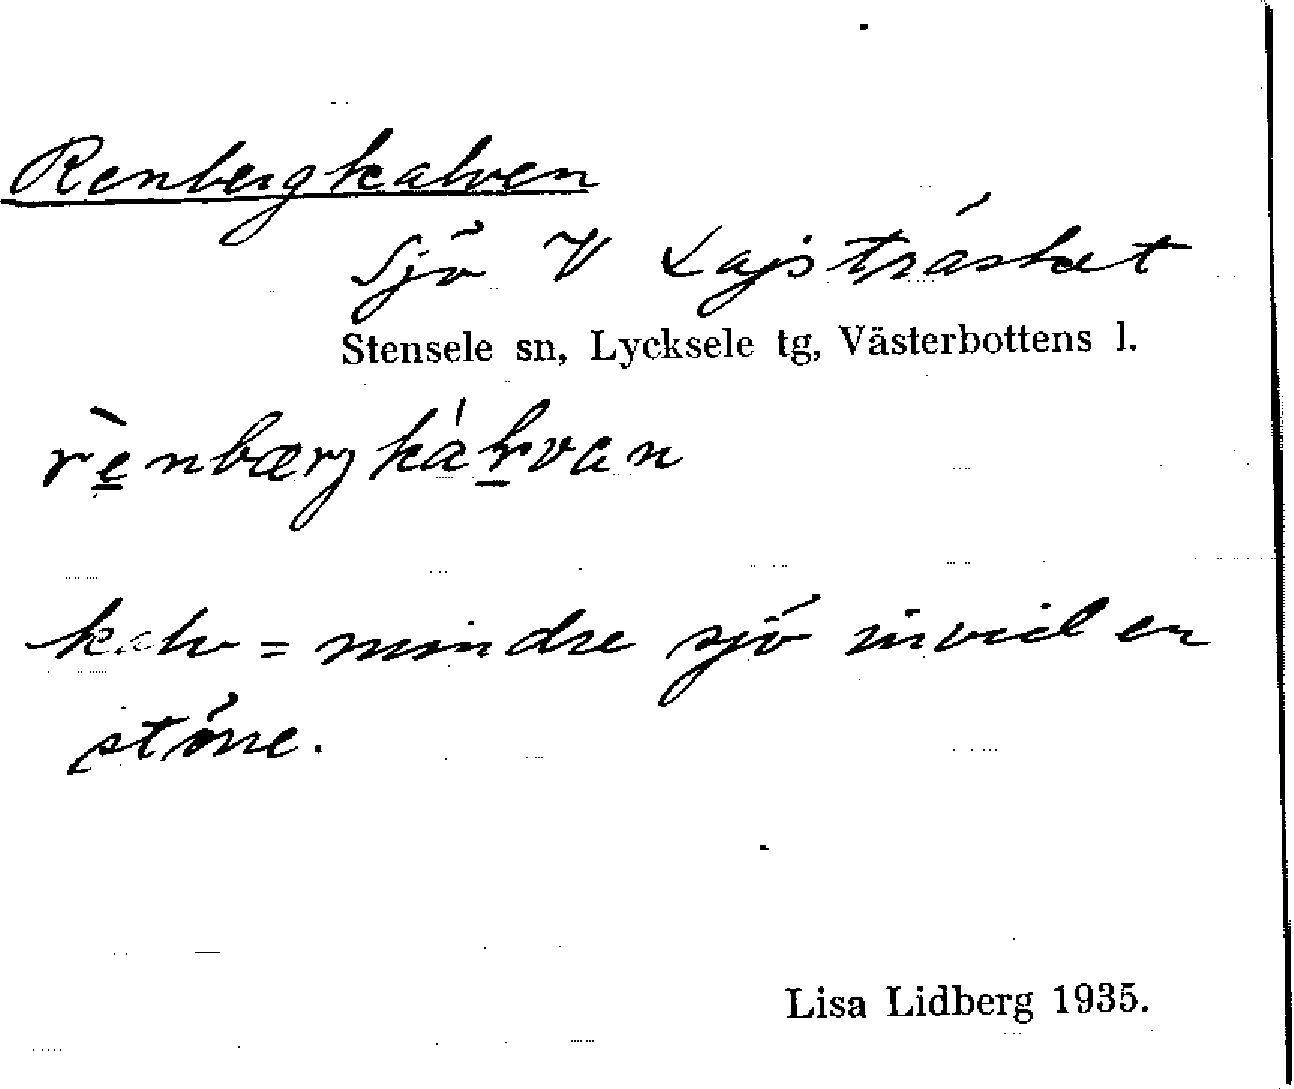 Renbergkalven
Sjö V Lajsträsket
Stensele sn, Lycksele tg, Västerbottens l.
rènbærjkálvan
kalv = mindre sjö invid en
större.
Lisa Lidberg 1935.